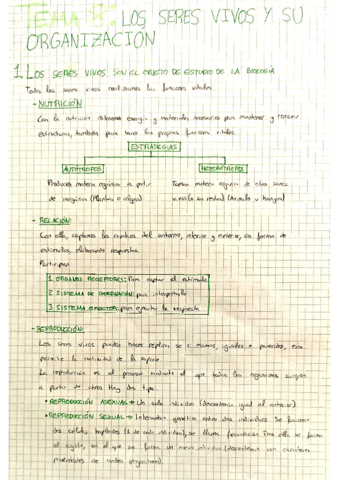 TEMA 8: LOS SERES VIVOS Y SU
ORGANIZACIÓN
1. LOS SERES VIVOS SON EL OBJETO DE ESTUDIO DE LA BIOLOGÍA
Todos los seres vivos realizamos las funciones vitales.
- NUTRICIÓN
Con la nutrición obtenemos energía y materiales necesarios para mantener y renovar
estructuras, también para hacer las propias funciones vitales.
ESTRATEGIAS
AUTÓTROFOS HETERÓTROFOS
Producen materia orgánica a partir
de inorgánica (Plantas o algas)
Toman materia orgánica de otros seres
vivos (o sus restos) (Animales u hongos)
- RELACIÓN:
Con ella, captamos los cambios del entorno, interior y exterior, en forma de
estímulos, elaborando respuestas.
Participan:
1. ÓRGANOS RECEPTORES: Para captar el estímulo
2. SISTEMA DE COORDINACIÓN: para interpretarlo
3. SISTEMA EFECTOR: para ejecutar la respuesta
- REPRODUCCIÓN:
Los seres vivos pueden hacer réplicas de sí mismos, iguales o parecidos, esto
permite la continuidad de la especie
La reproducción es el proceso mediante el que todos los organismos surgen
a partir de otros. Hay dos tipos:
• REPRODUCCIÓN ASEXUAL → Un solo individuo (descendencia igual al anterior)
• REPRODUCCIÓN SEXUAL → Intercambio genético entre dos individuos. Se fusionan
dos células haploides (1 de cada individuo), se llama fecundación. Tras ella se forma
el zigoto, en el que se forma un nuevo individuo (descendencia con caracteres
procedentes de ambos organismos).